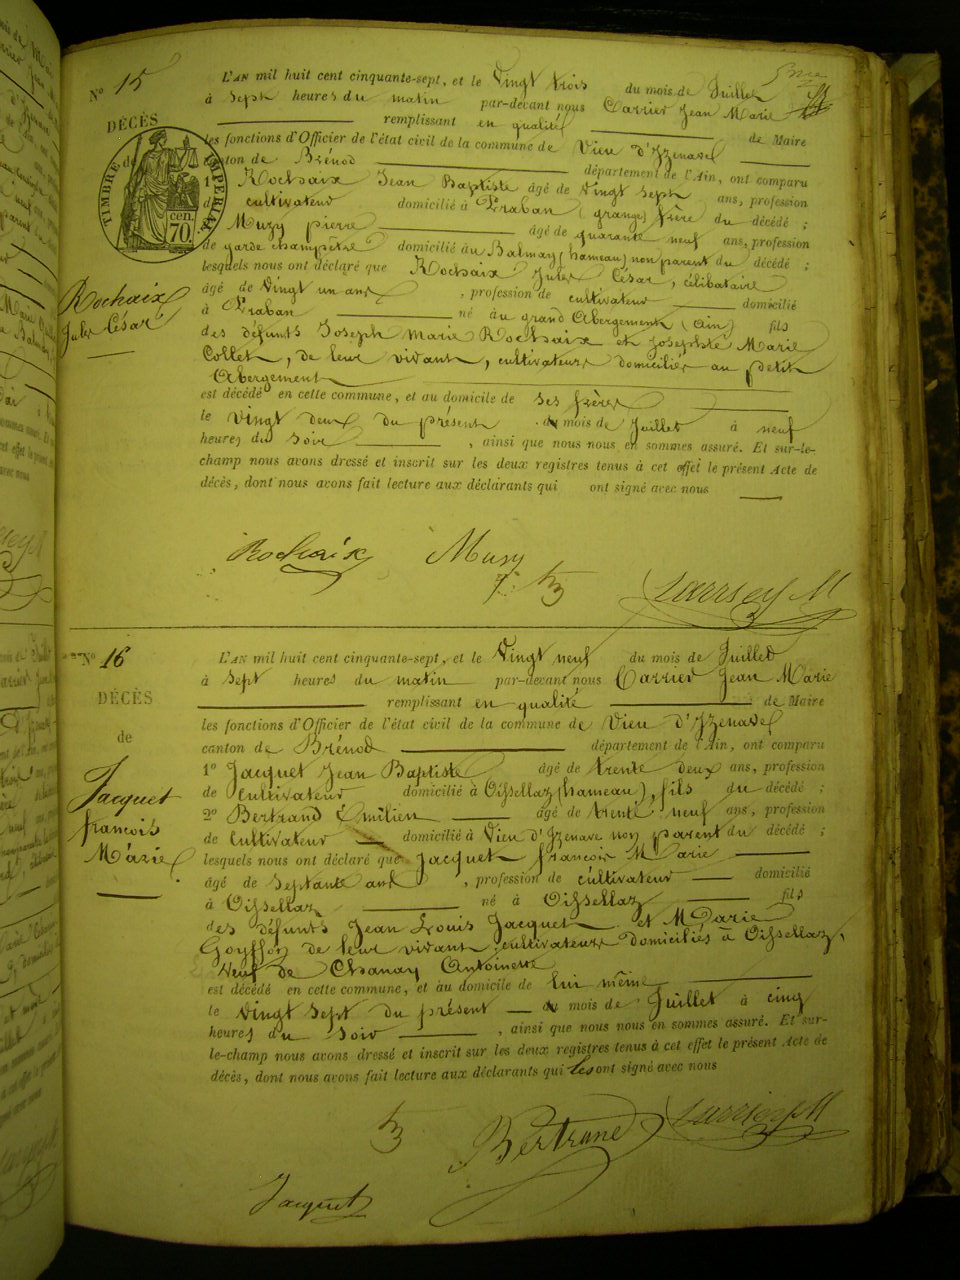 N° 15
L'AN mil huit cent cinquante-sept, et le Vingt trois du mois de Juillet
à Sept heures du matin par-devant nous Carrier Jean Marie
DÉCÈS
remplissant en qualité de Maire
les fonctions d'Officier de l'état civil de la commune de Vieu d'Izenave
de
canton de Brénod département de l'Ain, ont comparu
TIMBRE IMPÉRIAL
70 cen.
1° Rochaix Jean Baptiste âgé de Vingt Sept ans, profession
de cultivateur domicilié à Praban (grange) frère du décédé ;
Muzy pierre âgé de quarante neuf ans, profession
de garde champêtre domicilié au Balmay (hameau) non parent du décédé ;
lesquels nous ont déclaré que Rochaix Jules César, célibataire
Rochaix
Jules César
âgé de Vingt un ans, profession de cultivateur domicilié
à Praban né au grand Abergement (Ain) fils
des défunts Joseph Marie Rochaix et Josephte Marie
Collet, de leur vivant, cultivateurs domiciliés au petit
Abergement
est décédé en cette commune, et au domicile de ses frères
le Vingt deux du présent du mois de Juillet à neuf
heures du Soir, ainsi que nous nous en sommes assuré. Et sur-le-
champ nous avons dressé et inscrit sur les deux registres tenus à cet effet le présent Acte de
décès, dont nous avons fait lecture aux déclarants qui ont signé avec nous
Rochaix Musy Carrier M
N° 16
L'AN mil huit cent cinquante-sept, et le Vingt neuf du mois de Juillet
à Sept heures du matin par-devant nous Carrier Jean Marie
DÉCÈS
remplissant en qualité de Maire
les fonctions d'Officier de l'état civil de la commune de Vieu d'Izenave
de
canton de Brénod département de l'Ain, ont comparu
1° Jacquet Jean Baptiste âgé de trente deux ans, profession
de cultivateur domicilié à Oissellaz (hameau), fils du décédé ;
Jacquet
françois
Marie
2° Bertrand Émilien âgé de trente neuf ans, profession
de cultivateur domicilié à Vieu d'Izenave non parent du décédé ;
lesquels nous ont déclaré que Jacquet françois Marie
âgé de Septante ans, profession de cultivateur domicilié
à Oissellaz né à Oissellaz fils
des défunts Jean Louis Jacquet et Marie
Goyffon de leur vivant cultivateurs domiciliés à Oissellaz,
Veuf de Chanay Antoinette
est décédé en cette commune, et au domicile de lui même
le Vingt Sept du présent du mois de Juillet à cinq
heures du Soir, ainsi que nous nous en sommes assuré. Et sur-
le-champ nous avons dressé et inscrit sur les deux registres tenus à cet effet le présent Acte de
décès, dont nous avons fait lecture aux déclarants qui les ont signé avec nous
Bertrand Carrier M
Jacquet